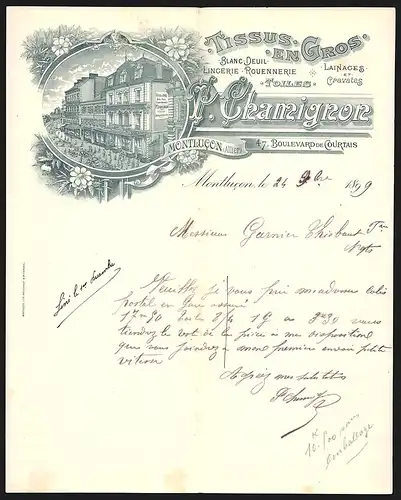 Tissus
EN GROS
BLANC, DEUIL
LINGERIE ROUENNERIE
TOILES
LAINAGES
ET
Cravates
P. Chamignon
MONTLUÇON (ALLIER)
47, BOULEVARD DE COURTAIS
Montluçon, le 24 9bre 1899
Messieurs Garnier Thiebaut
Veuillez je vous prie m'adresser colis
postal en gare
17 90 toile 8/4 19 a 2.30 vous
tiendrez le reste de la pièce a ma disposition
que vous joindrez a mon premier envoi petite
vitesse
Agréez mes salutations
emballage